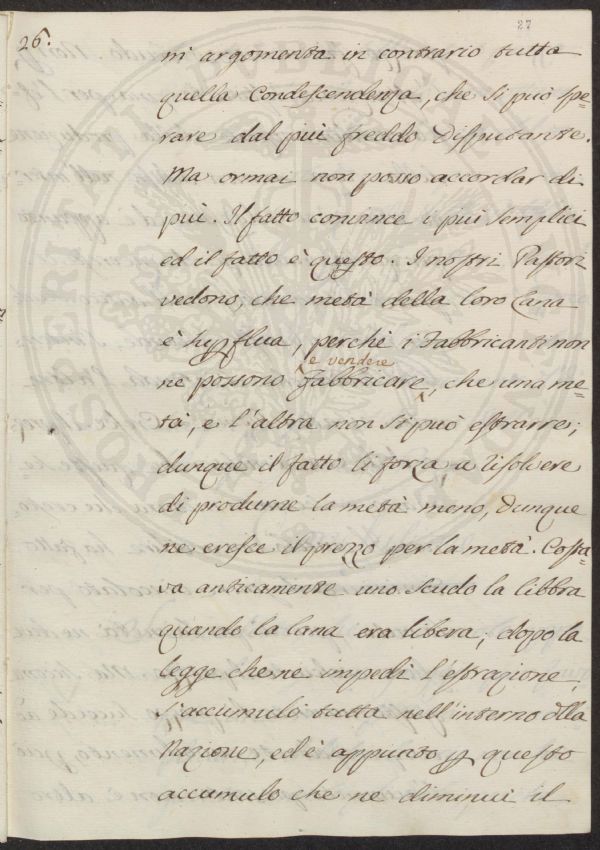 26.
27
ni argomenta in contrario tutta
quella Condescendenza, che si può spe=
rare dal più freddo Disputante.
Ma ormai non posso accordar di
più. Il fatto convince i più semplici
ed il fatto è questo. I nostri Pastori
vedono, che metà della loro lana
è superflua, perchè i Fabbricanti non
e vendere
ne possono fabbricare, che una me=
tà, e l'altra non si può estrarre;
dunque il fatto li forza a risolvere
di produrne la metà meno, Dunque
ne cresce il prezzo per la metà. Costa=
va anticamente uno scudo la libbra
quando la lana era libera; dopo la
legge che ne impedì l'estrazione,
s'accumulò tutta nell'interno dlla
Nazione, ed è appunto p questo
accumulo che ne diminuì il